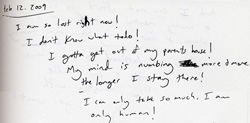 Feb 12. 2009
I am so lost right now!
I don't know what to do!
I gotta get out of my parents house!
My mind is numbing more & more
the longer I stay there!
I can only take so much. I am
only human!